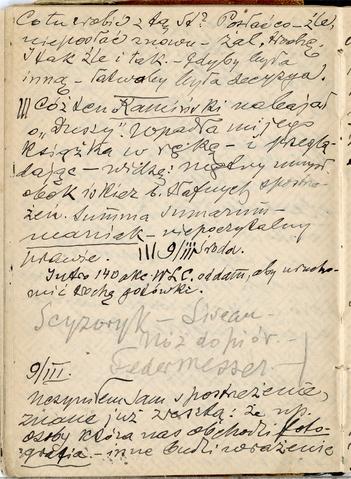 Co tu robić z tą St? Posłać co – źle,
nieposłać znowu – żal, szkoda.
I tak źle i tak – gdyby była
inna – łatwa by była decyzja.
III Cóż ten Kamiński nabajał
o „Duszy" wpadła mi jego
książka w rękę – i przeglą-
dając – widzę: mętny umysł
obok kilku b. trafnych spostrze-
żen. Summa summarum –
maniak – niepoczytalny
prawie. III 9/III środa.
Jutro 140 akc. W.L.C. oddam, aby urucho-
mić trochę gotówki.
Scyzoryk –
Nóż do piór –
Federmesser
9/III.
Uczyniłem sam spostrzeżenie,
znane już zresztą: że np.
osoby która nas obchodzi foto-
grafia – inne budzi wrażenie